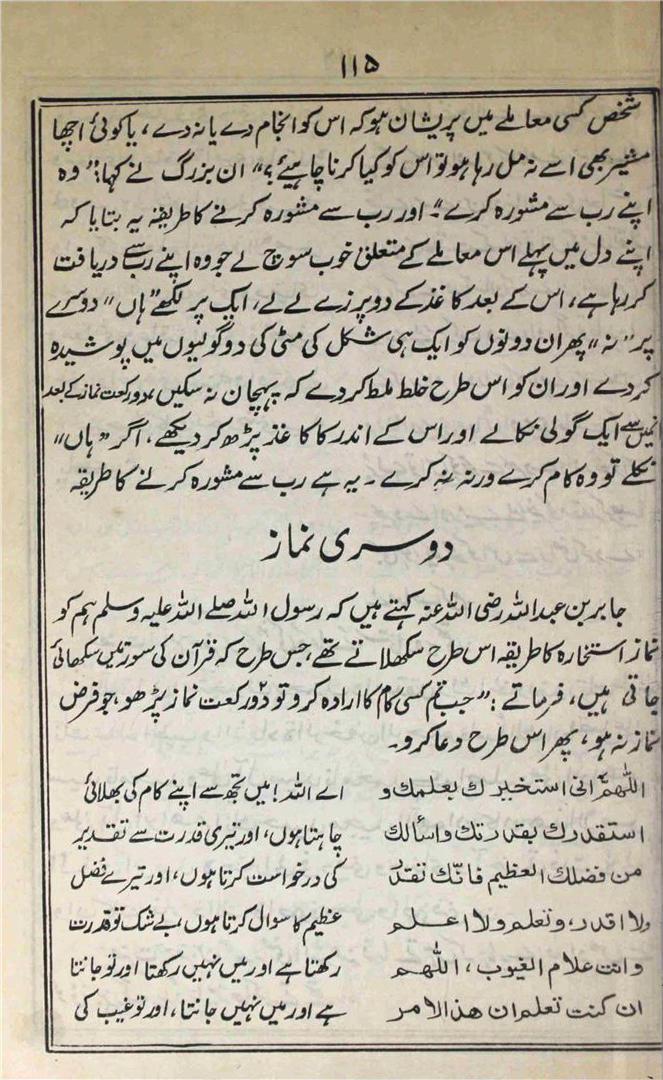 ۱۱۵
شخص کسی معاملے میں پریشان ہو کہ اس کو انجام دے یا نہ دے، یا کوئی اچھا
مشیر بھی اسے نہ مل رہا ہو تو اس کو کیا کرنا چاہیئے؟" ان بزرگ نے کہا: "وہ
اپنے رب سے مشورہ کرے" اور رب سے مشورہ کرنے کا طریقہ یہ بتایا کہ
اپنے دل میں پہلے اس معاملے کے متعلق خوب سوچ لے جو وہ اپنے رب سے دریافت
کر رہا ہے، اس کے بعد کاغذ کے دو پرزے لے لے، ایک پر لکھے "ہاں" دوسرے
پر "نہ" پھر ان دونوں کو ایک ہی شکل کی مٹی کی دو گولیوں میں پوشیدہ
کر دے اور ان کو اس طرح خلط ملط کر دے کہ پہچان نہ سکیں، دو رکعت نماز کے بعد
انمیں سے ایک گولی نکالے اور اس کے اندر کا کاغذ پڑھ کر دیکھے، اگر "ہاں"
نکلے تو وہ کام کرے ورنہ نہ کرے۔ یہ ہے رب سے مشورہ کرنے کا طریقہ
دوسری نماز
جابر بن عبداللہ رضی اللہ عنہ کہتے ہیں کہ رسول اللہ صلے اللہ علیہ وسلم ہم کو
نماز استخارہ کا طریقہ اس طرح سکھلاتے تھے، جس طرح کہ قرآن کی سورتیں سکھائی
جاتی ہیں، فرماتے: "جب تم کسی کام کا ارادہ کرو تو دو رکعت نماز پڑھو، جو فرض
نماز نہ ہو، پھر اس طرح دعا کرو۔
اللّٰهمّ انی استخیرك بعلمك و اے اللہ! میں تجھ سے اپنے کام کی بھلائی
استقدرك بقدرتك واسألك چاہتا ہوں، اور تیری قدرت سے تقدیر
من فضلك العظیم فانّك تقدر کی درخواست کرتا ہوں، اور تیرے فضل
ولا اقدر، وتعلم ولا اعلم عظیم کا سوال کرتا ہوں، بے شک تو قدرت
وانت علام الغیوب، اللّٰهم رکھتا ہے اور میں نہیں رکھتا اور تو جانتا
ان كنت تعلم ان هذا الامر ہے اور میں نہیں جانتا، اور تو غیب کی